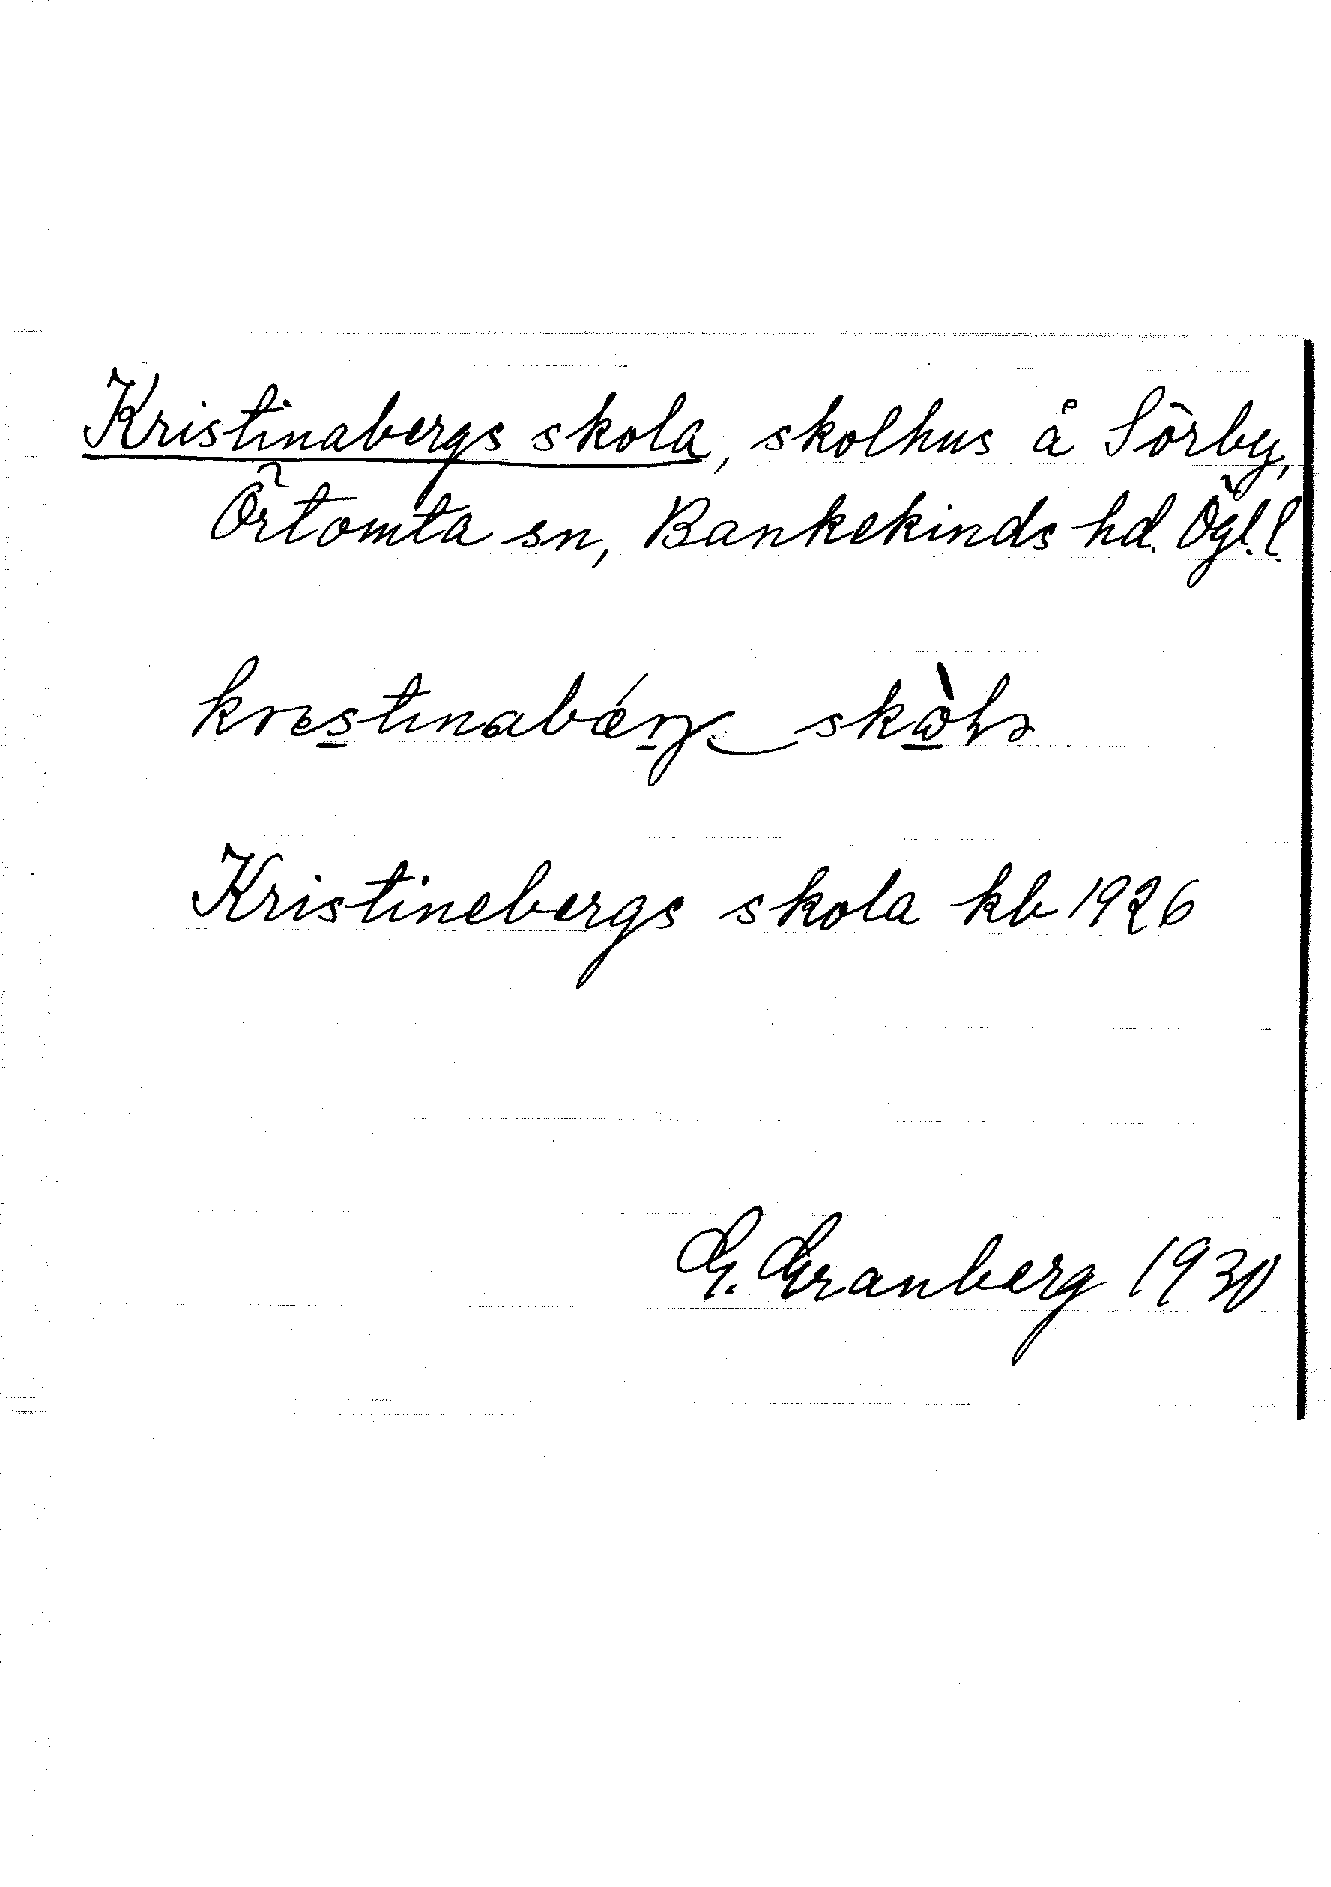 Kristinabergs skola, skolhus å Sörby,
Örtomta sn, Bankekinds hd. Ögl. l.
Kristinebergs skola kb 1926
G. Granberg 1930